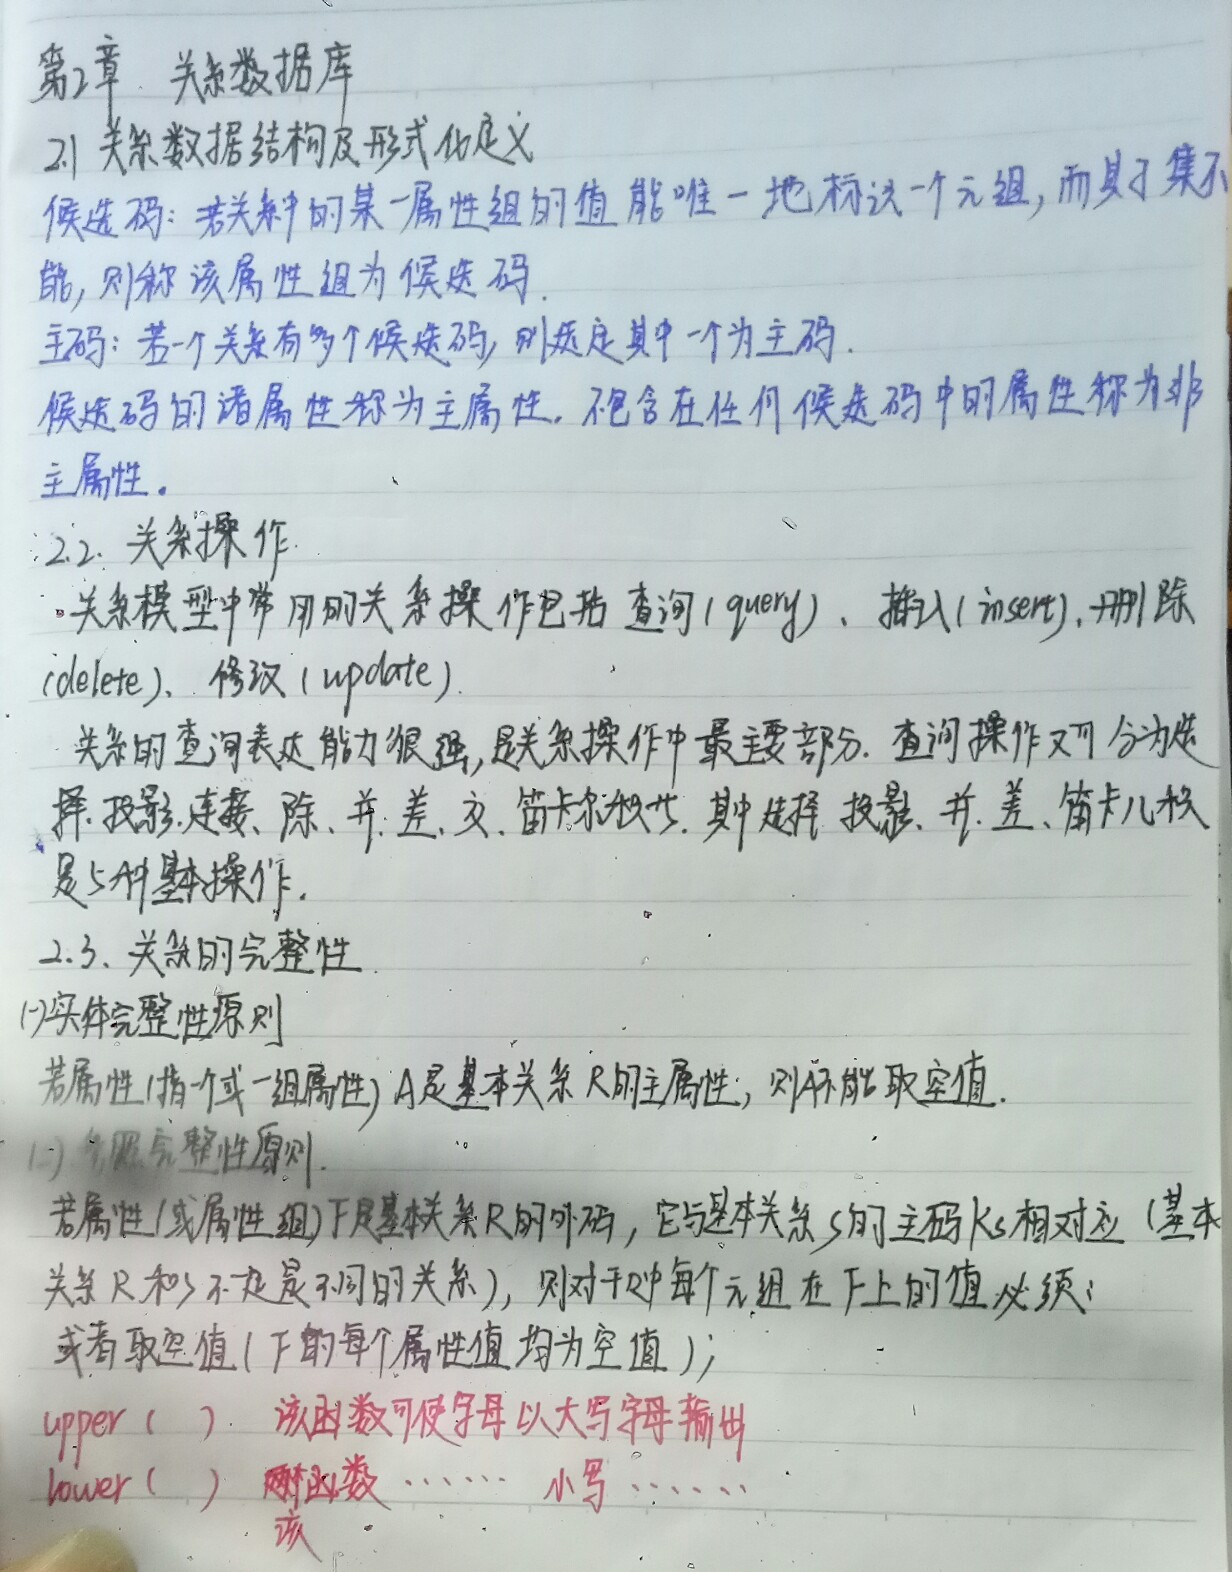 第2章 关系数据库
2.1 关系数据结构及形式化定义
候选码：若关系中的某一属性组的值能唯一地标识一个元组，而其子集不
能，则称该属性组为候选码．
主码：若一个关系有多个候选码，则选定其中一个为主码．
候选码的诸属性称为主属性．不包含在任何候选码中的属性称为非
主属性。
2.2. 关系操作．
关系模型中常用的关系操作包括 查询(query)、插入(insert)、删除
(delete)、修改(update)．
关系的查询表达能力很强，是关系操作中最主要部分．查询操作又可分为选
择、投影、连接、除、并、差、交、笛卡尔积 等．其中选择 投影、并、差、笛卡儿积
是5种基本操作．
2.3、关系的完整性
(一)实体完整性原则
若属性(指一个或一组属性)A是基本关系R的主属性，则A不能取空值．
(二)参照完整性原则．
若属性(或属性组)F是基本关系R的外码，它与基本关系S的主码Ks相对应（基本
关系R和S不一定是不同的关系），则对于R中每个元组在F上的值必须：
或者取空值(F的每个属性值均为空值)；
upper( ) 该函数可使字母以大写字母输出
lower( ) 函数 …… 小写 ……
该